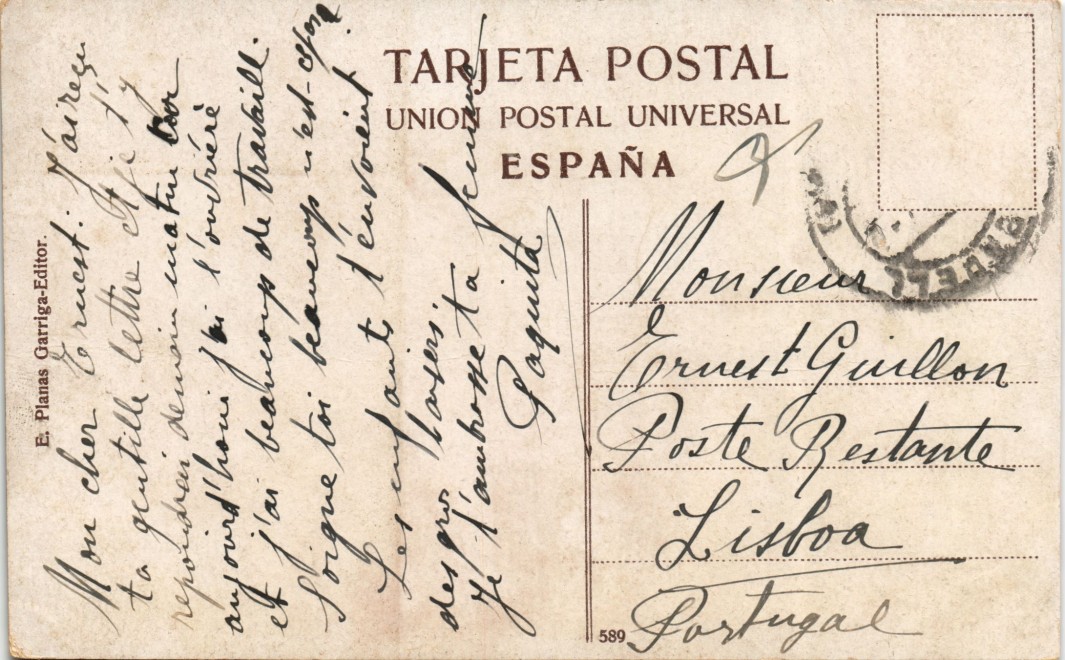 TARJETA POSTAL
UNION POSTAL UNIVERSAL
ESPAÑA
E. Planas Garriga-Editor.
Mon cher Ernest: J'ai reçu
ta gentille lettre et je t'y
repondrai demain matin car
aujourd'houi j'ai l'ouvrière
et j'ai beaucoup de travaill.
Soigne toi beaucoup n'est-ce pas
Les enfants t'envoient
des gros baisers.
Je t'ambrasse ta femme
Paquita
Monsieur
Ernest Guillon
Poste Restante
Lisboa
Portugal
589